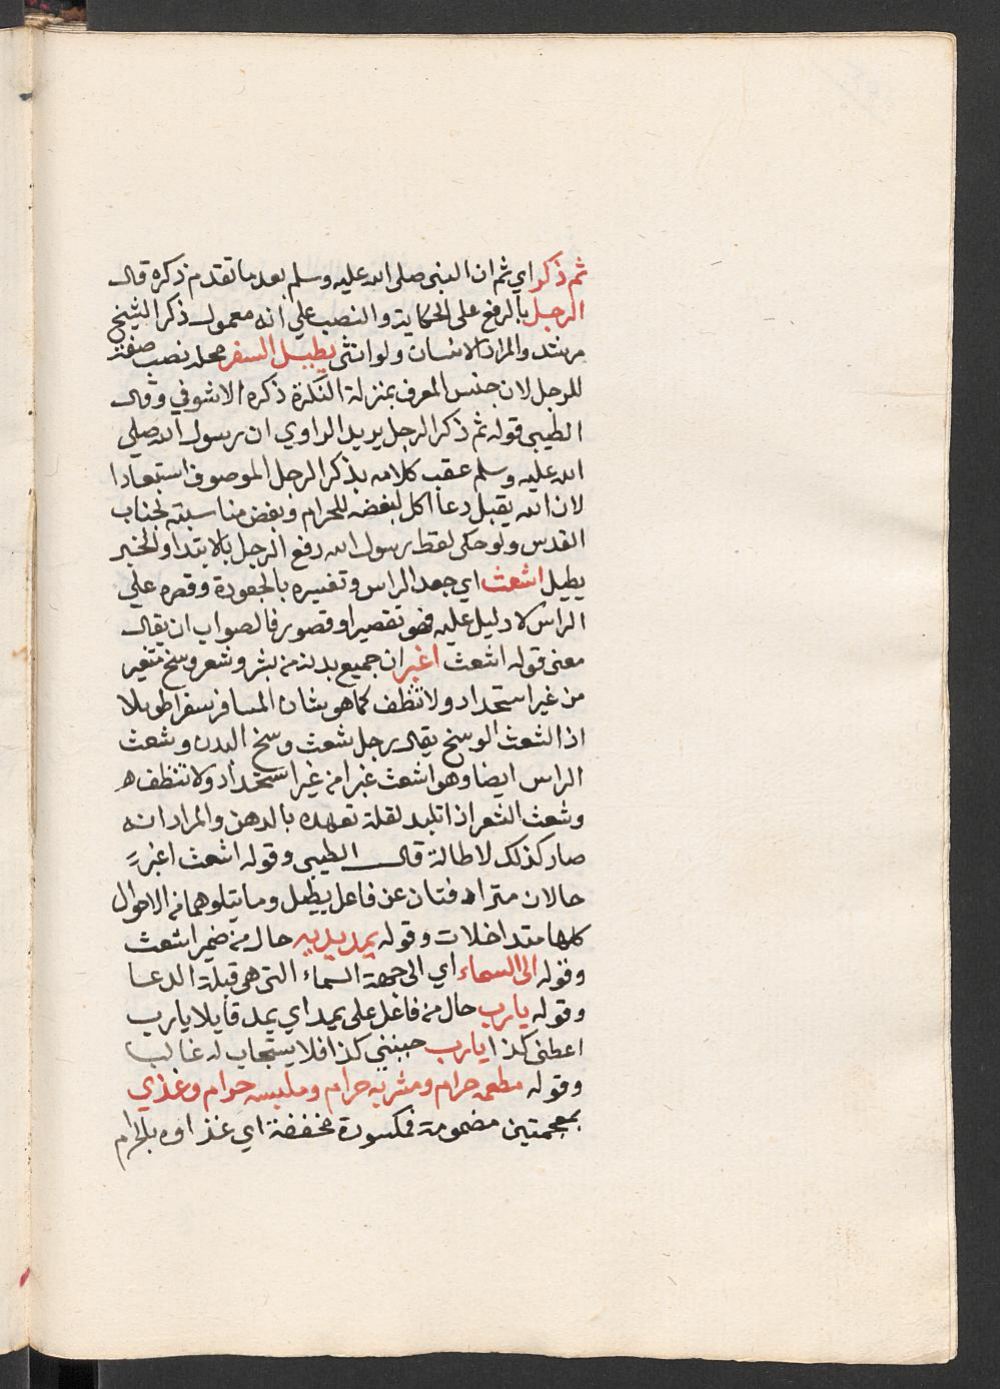 ثم ذكر اي ثم ان النبي صلى الله عليه وسلم بعد ما تقدم ذكره قال
الرجل بالرفع على الحكاية والنصب علي انه معمول ذكر الشيخ
مرشد والمراد الانسان ولو انثى يطيل السفر محله نصب صفة
للرجل لان جنس المعرف بمنزلة النكرة ذكره الاشوفي وقال
الطيبي قوله ثم ذكر الرجل يريد الراوي ان رسول الله صلي
الله عليه وسلم عقب كلامه بذكر الرجل الموصوف استبعادا
لان الله يقبل دعا اكل لبغضه للحرام وبغض مناسبته لجناب
القدس ولو حكى لفظ رسول الله رفع الرجل بالابتدا والخبر
يطيل اشعث اي جعد الراس وتفسيره بالجعودة وقصره علي
الراس لا دليل عليه فهو تقصير او قصور فالصواب ان يقال
معنى قوله اشعث اغبر ان جميع بدنه من بشر وشعر وسخ متغير
من غير استحداد ولا تنظف كما هو شان المسافر سفرا طويلا
اذ الشعث الوسخ يقال رجل شعث وسخ البدن وشعث
الراس ايضا وهو اشعث غبرا من غير استحداد ولا تنظف
وشعث الشعر اذا تلبد لقلة تعهده بالدهن والمراد انه
صار كذلك لاطالة قال الطيبي وقوله اشعث اغبر
حالان مترادفتان عن فاعل يطيل وما يتلوهما من الاحوال
كلها متداخلات وقوله يمد يديه حال من ضمير اشعث
وقوله الى السماء اي الى جهة السماء التي هي قبلة الدعا
وقوله يارب حال من فاعل على يمد اي يمد قايلا يارب
اعطني كذا يارب جنبني كذا فلا يستجاب له غالبا
وقوله مطعمه حرام ومشربه حرام وملبسه حرام وغذي
بمعجمتين مضمومة فمكسورة مخففة اي غذاوه بالحرام